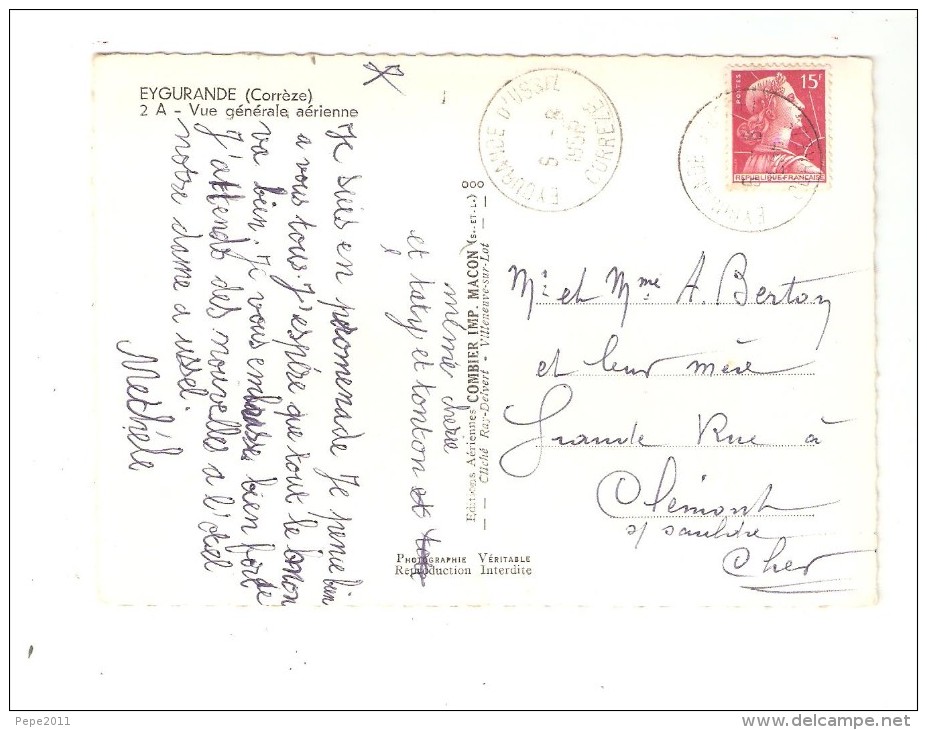 EYGURANDE (Corrèze)
2 A - Vue générale aérienne
mémé chérie
et taty et tonton et
Je suis en promenade Je pense bien
a vous tous. J'espère que tout le monde
va bien. Je vous embrasse bien fort
J'attends des nouvelles a
notre dame a ussel.
Michéle
EYGURANDE D'USSEL
CORREZE
5 - 8
1958
Editions Aériennes COMBIER IMP. MACON (S.-ET-L.)
Cliché Ray-Delvert - Villeneuve-sur-Lot
PHOTOGRAPHIE VÉRITABLE
Reproduction Interdite
POSTES
15F
REPUBLIQUE FRANÇAISE
Mr et Mme A. Berton
et leur mère
Grande Rue à
Clémont
s/ sauldre
Cher
Pepe2011
www.delcampe.net